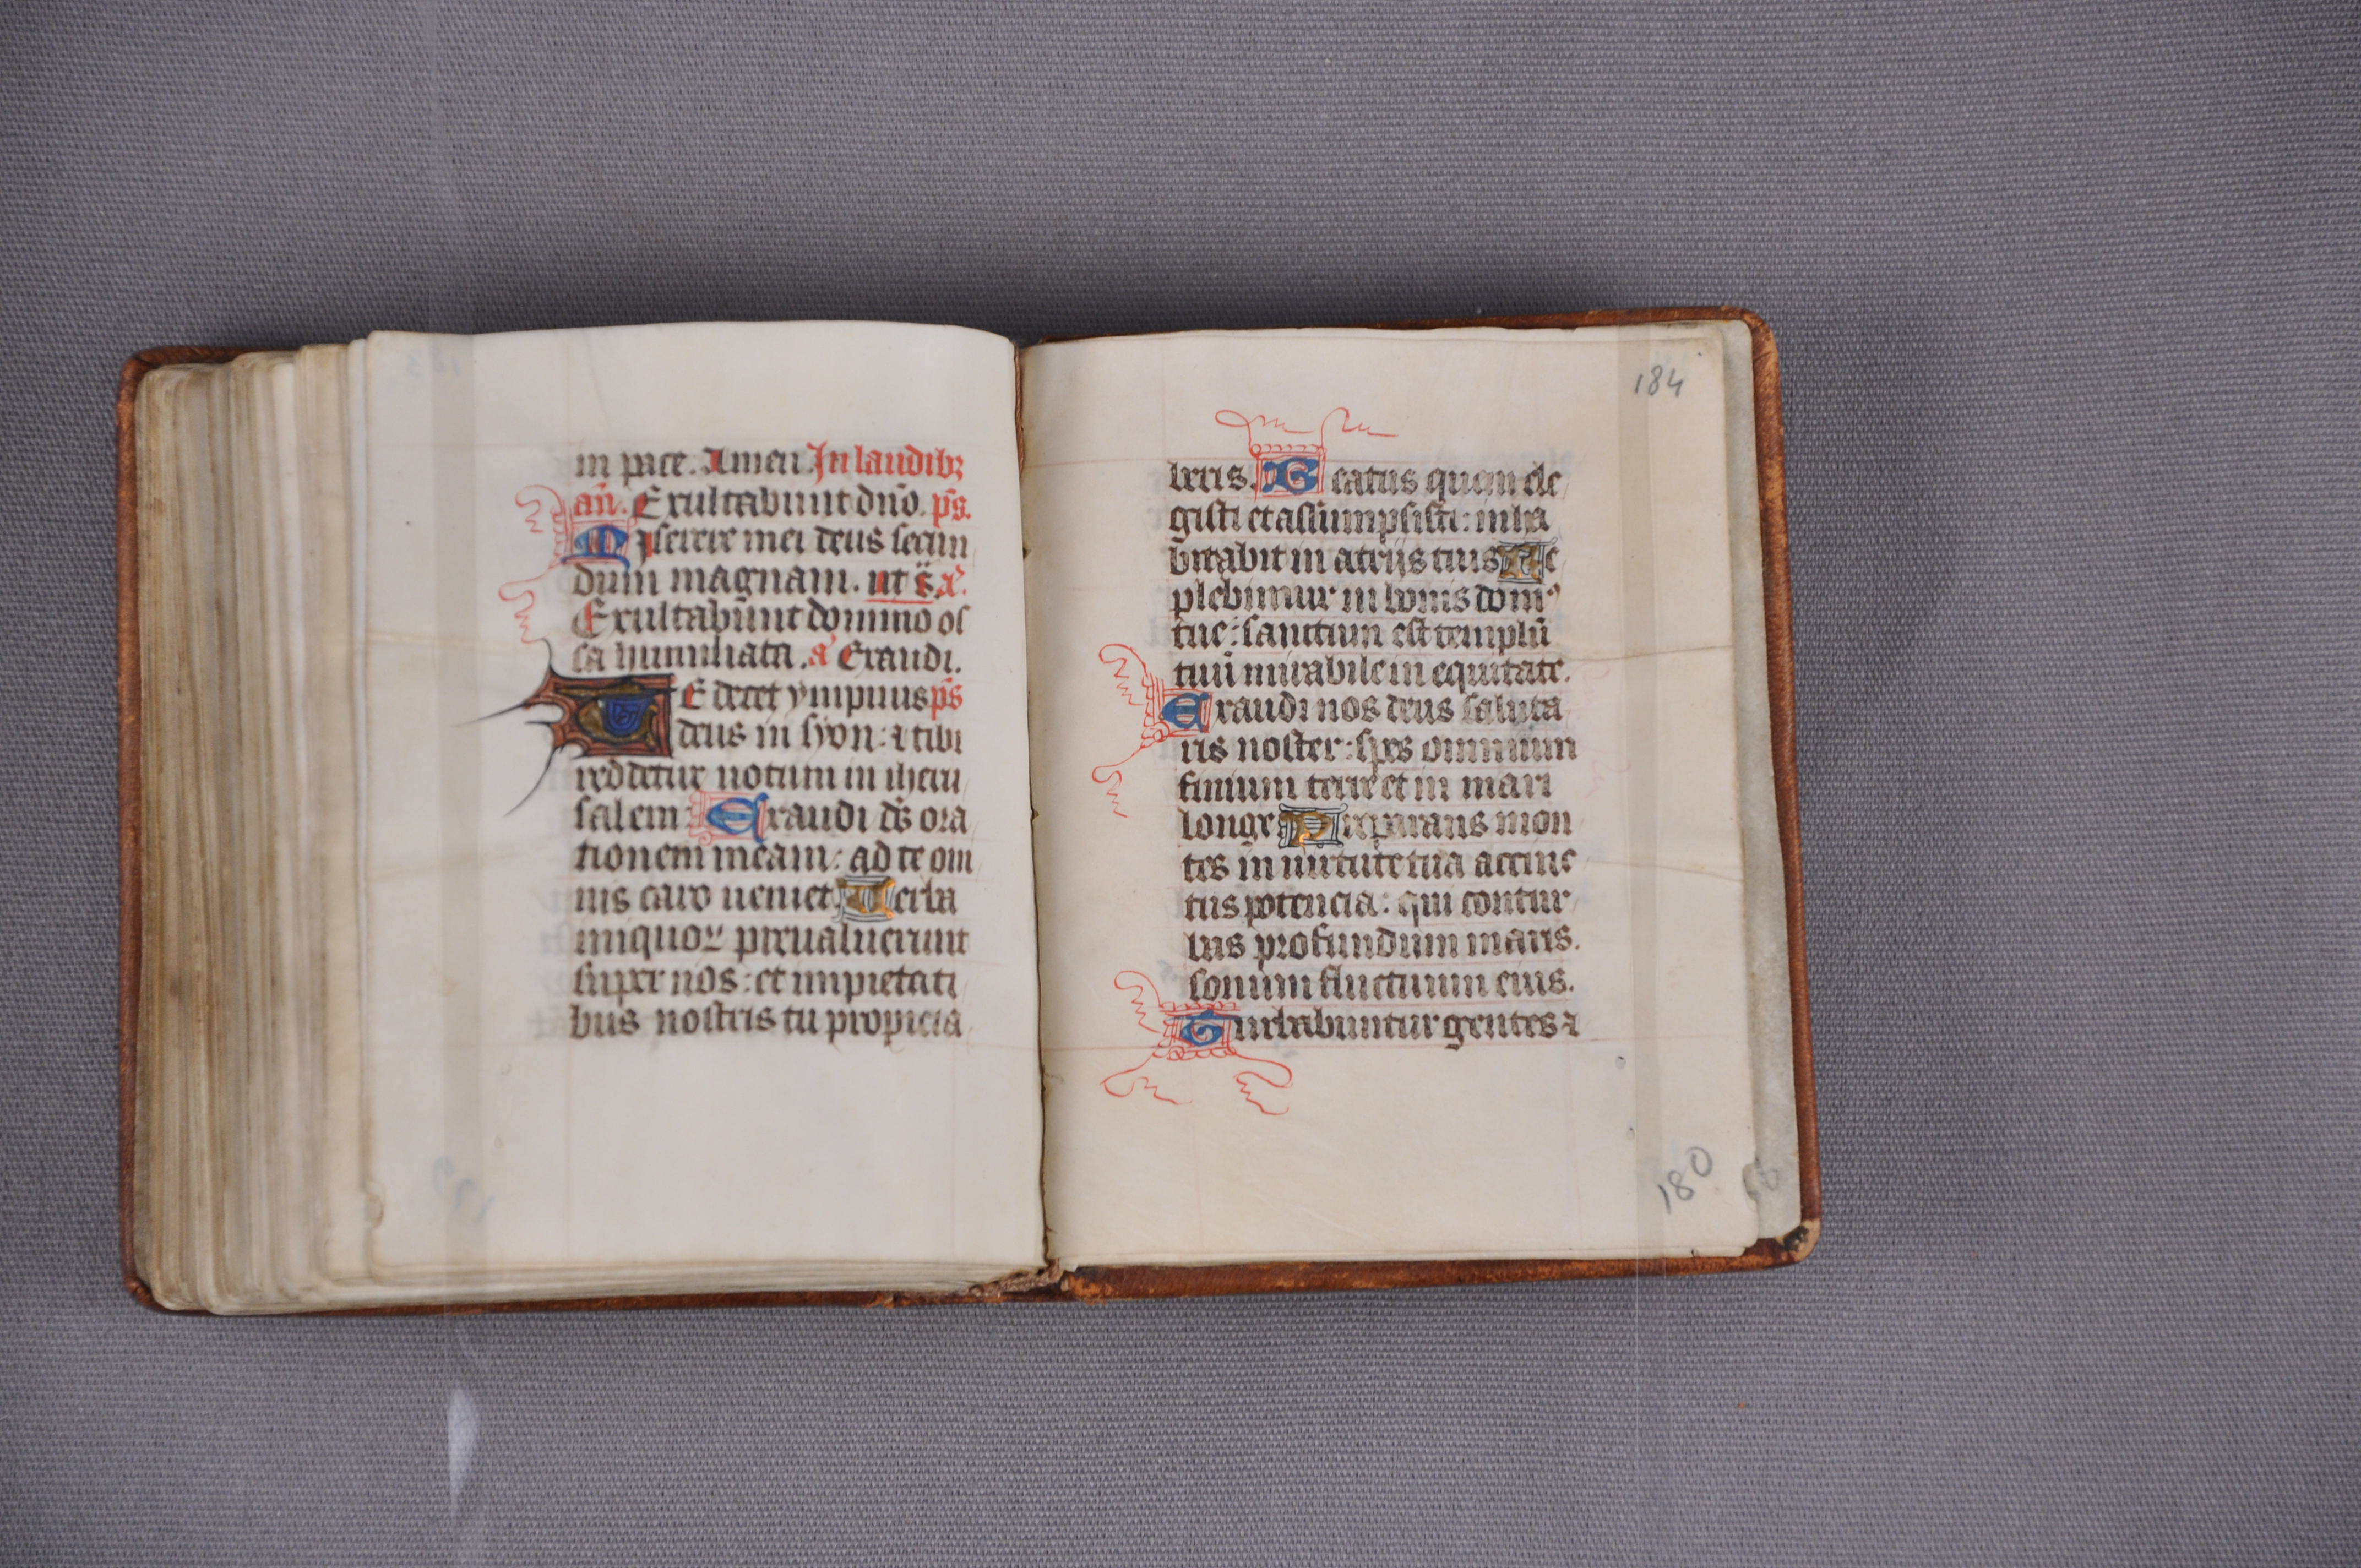 in pace. Amen In laudibꝫ
an̄. Exultabunt dn̄o. ps̄.
Miserere mei deus secun
dum magnam. ut s̄. a᷒.
Exultabunt domino os
sa humiliata. a᷒ Exaudi.
TE decet ympnus ps̄
deus in syon: ⁊ tibi
reddetur uotum in iheru
salem: Exaudi ds̄ ora
tionem meam: ad te om
nis caro ueniet Uerba
iniquoꝝ preualuerunt
super nos: et impietati
bus nostris tu propicia
184
beris. Beatus quem ele
gisti et assumpsisti: inha
bitabit in atrijs tuis Re
plebimur in bonis domꝰ
tue: sanctum est templū
tuū mirabile in equitate.
Exaudi nos deus saluta
ris noster: spes omnium
finium terre et in mari
longe Preparans mon
tes in uirtute tua accinc
tus potencia: qui contur
bas profundum maris.
sonum fluctuum eius.
Turbabuntur gentes ⁊
180